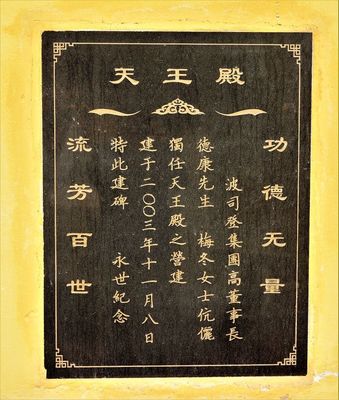 天王殿
功德无量
波司登集團高董事長
德康先生 梅冬女士伉儷
獨任天王殿之營建
建于二〇〇三年十一月八日
特此建碑 永世紀念
流芳百世